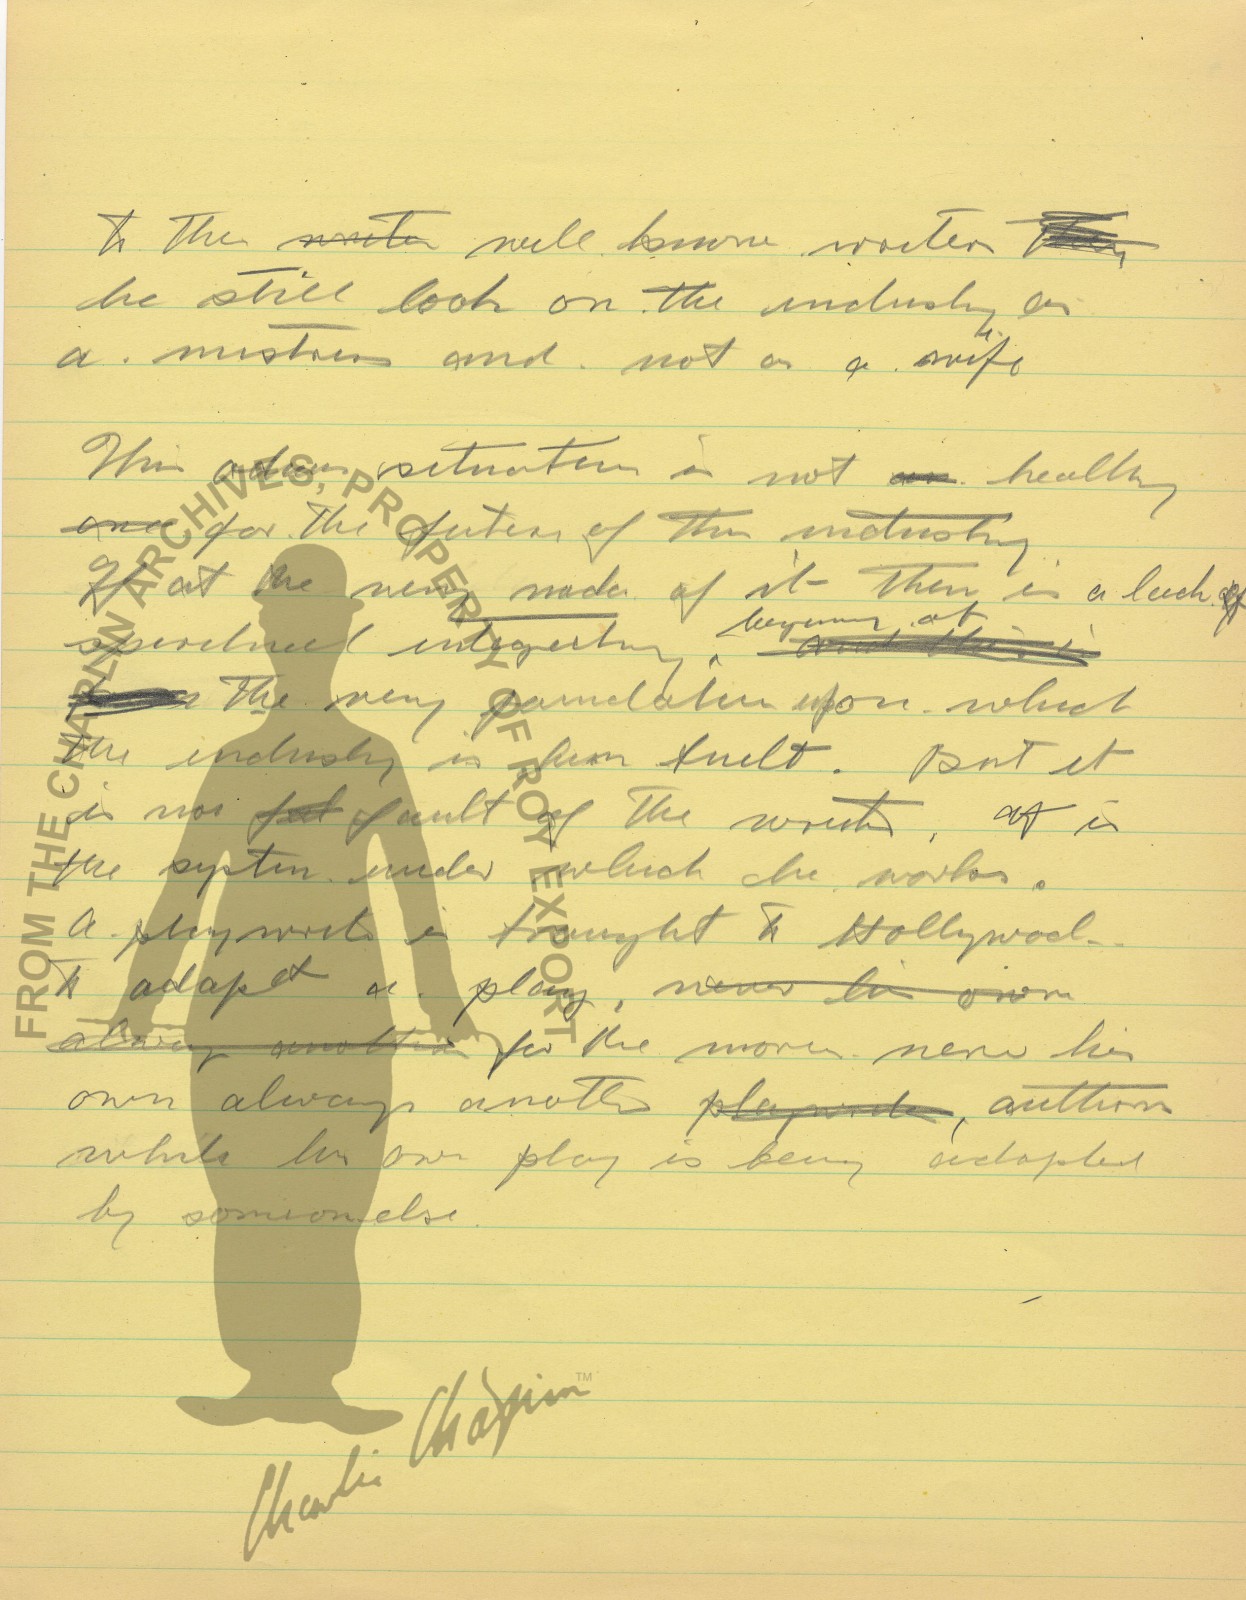 to the writer well known writer they
he still look on the industry as
a. mistress and. not as a. wife
This situation is not an. healthy
one for the future of this industry.
If at the very of it there is a lack of
spiritual integerty, begining at and this is
the very foundation upon. which
the industry is been built. But it
is not fault of the writer, it is
the system under which he works.
A playwrite is brought to Hollywood.
to adapt a. play, never his own
always another for the movies. never his
own always another playwrite, authors
while his own play is being adapted
by someone else.
FROM THE CHAPLIN ARCHIVES, PROPERTY OF ROY EXPORT
Charlie Chaplin™